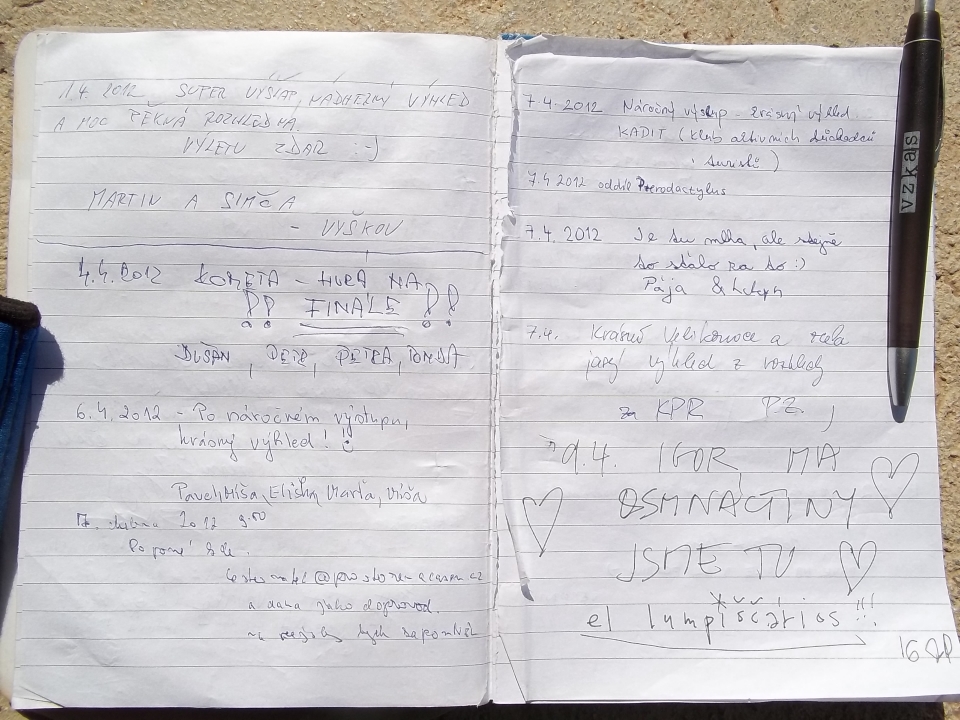 1.4. 2012 SUPER VÝŠVAP, NÁDHERNÝ VÝHLED
A MOC PĚKNÁ ROZHLEDNA.
VÝLETU ZDAR :-)
MARTIN A SIMČA
- VYŠKOV
4.4.2012 KOMETA - HURÁ NA
!! FINÁLE !!
DUŠAN, PETR, PETRA, TONDA
6.4.2012 - Po náročném výstupu,
krásný výhled! :)
Pavel, Míša, Eliška, Marťa, Víťa
7. dubna 2012 9.50
Po prvé zde.
@prostoremacasem.cz
a dana jako doprovod.
7.4.2012 Náročný výstup - krásný výhled.
KADIT (klub aktivních důchodců
i turistů)
7.4 2012 oddíl Pterodactylus
7.4.2012 Je tu mlha, ale stejně
to stálo za to :)
Pája &
7.4. Krásné Velikonoce a zcela
jasný výhled z rozhledny
za KPR PZ
9.4. IGOR MÁ
OSMNÁCTINY
JSME TU
el lumpíščários !!!
IGOR
vzkas